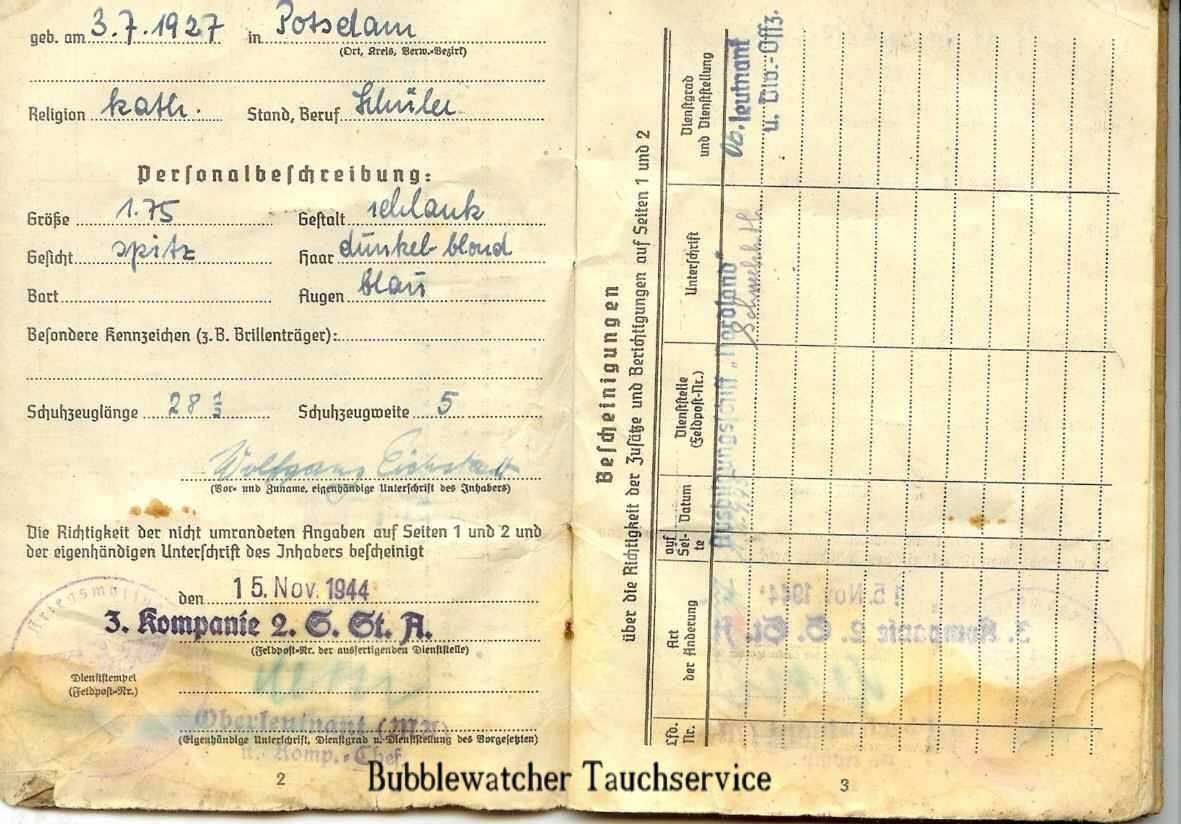 geb. am 3.7.1927 in Potsdam
(Ort, Kreis, Verw.-Bezirk)
Religion kath. Stand, Beruf Schüler
Personalbeschreibung:
Größe 1.75 Gestalt schlank
Gesicht spitz Haar dunkel blond
Bart Augen blau
Besondere Kennzeichen (z.B. Brillenträger):
Schuhzeuglänge 28 Schuhzeugweite 5
Wolfgang Eichstaedt
(Vor- und Zuname, eigenhändige Unterschrift des Inhabers)
Die Richtigkeit der nicht umrandeten Angaben auf Seiten 1 und 2 und
der eigenhändigen Unterschrift des Inhabers bescheinigt
den 15. Nov. 1944
3. Kompanie 2. S. St. A.
(Feldpost-Nr. der ausfertigenden Dienststelle)
Dienststempel
(Feldpost-Nr.)
Oberleutnant (MA)
(Eigenhändige Unterschrift, Dienstgrad u. Dienststellung des Vorgesetzten)
u. Komp.-Chef
2
Bescheinigungen
über die Richtigkeit der Zusätze und Berichtigungen auf Seiten 1 und 2
Lfd. Nr.
Art der Änderung
auf Sei-te
Datum
Dienststelle (Feldpost-Nr.)
Unterschrift
Dienstgrad und Dienststellung
Ausbildungsschiff „Nordland"
Ob. leutnant
u. Div.-Offz.
3
Bubblewatcher Tauchservice